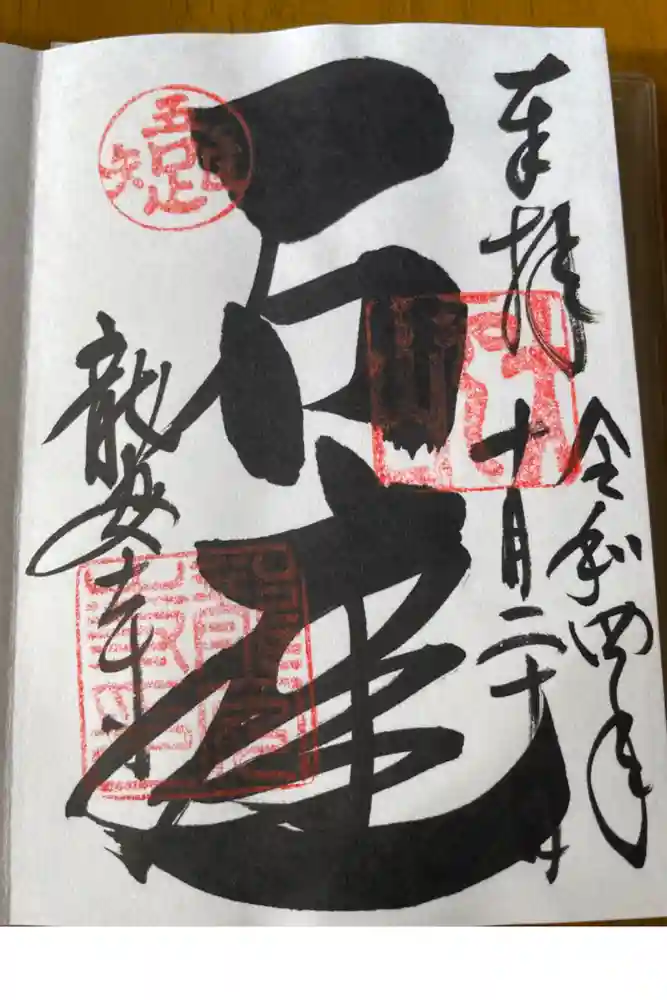 奉拝
令和四年
十月二十日
石庭
吾唯足知
龍安寺